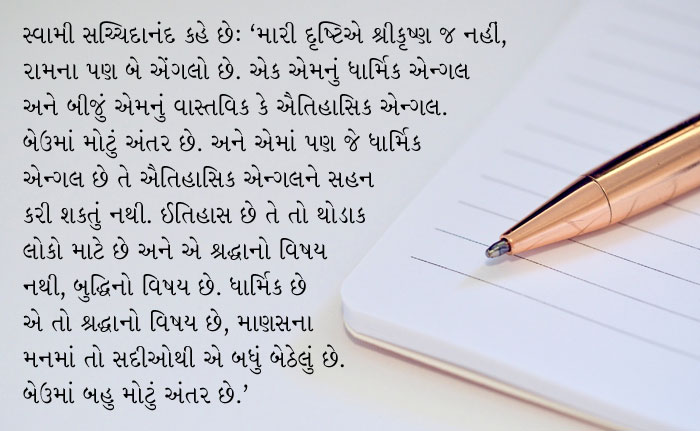 સ્વામી સચ્ચિદાનંદ કહે છેઃ ‘મારી દૃષ્ટિએ શ્રીકૃષ્ણ જ નહીં,
રામના પણ બે એંગલો છે. એક એમનું ધાર્મિક એન્ગલ
અને બીજું એમનું વાસ્તવિક કે ઐતિહાસિક એન્ગલ.
બેઉમાં મોટું અંતર છે. અને એમાં પણ જે ધાર્મિક
એન્ગલ છે તે ઐતિહાસિક એન્ગલને સહન
કરી શકતું નથી. ઈતિહાસ છે તે તો થોડાક
લોકો માટે છે અને એ શ્રદ્ધાનો વિષય
નથી, બુદ્ધિનો વિષય છે. ધાર્મિક છે
એ તો શ્રદ્ધાનો વિષય છે, માણસના
મનમાં તો સદીઓથી એ બધું બેઠેલું છે.
બેઉમાં બહુ મોટું અંતર છે.’